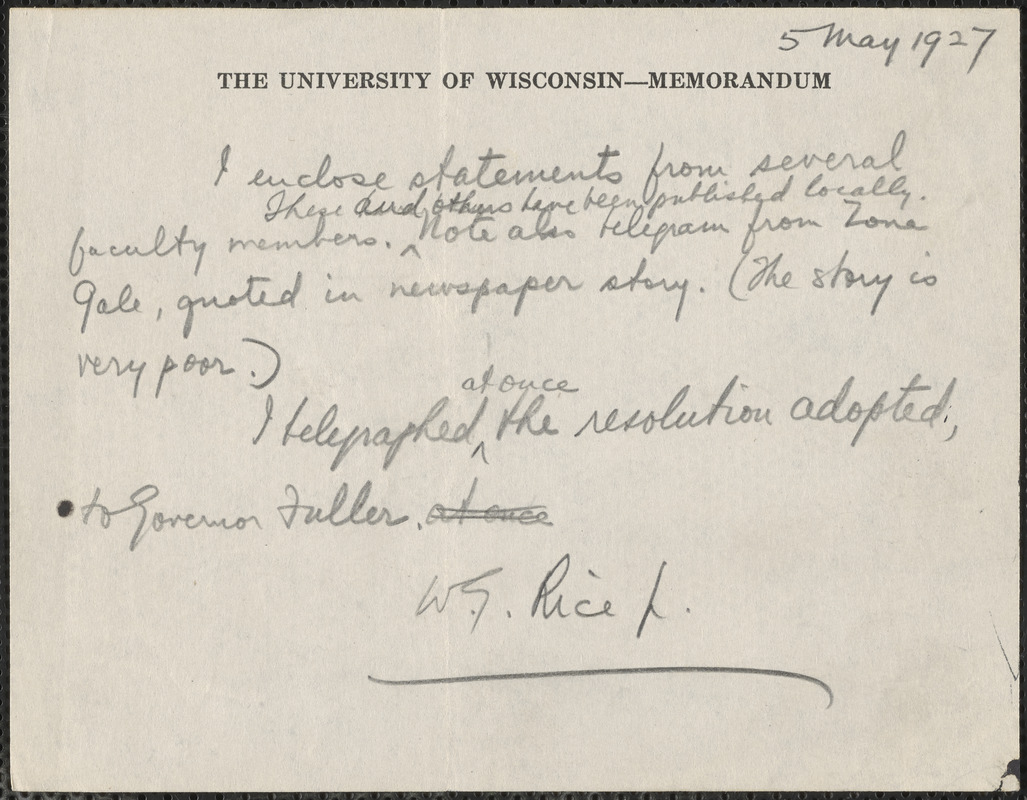 5 May 1927
THE UNIVERSITY OF WISCONSIN—MEMORANDUM
I enclose statements from several
These and others have been published locally.
faculty members. ^ Note also telegram from Zona
Gale, quoted in newspaper story. (The story is
very poor.)
at once
I telegraphed ^ the resolution adopted,
to Governor Fuller. at once
W.G. Rice Jr.